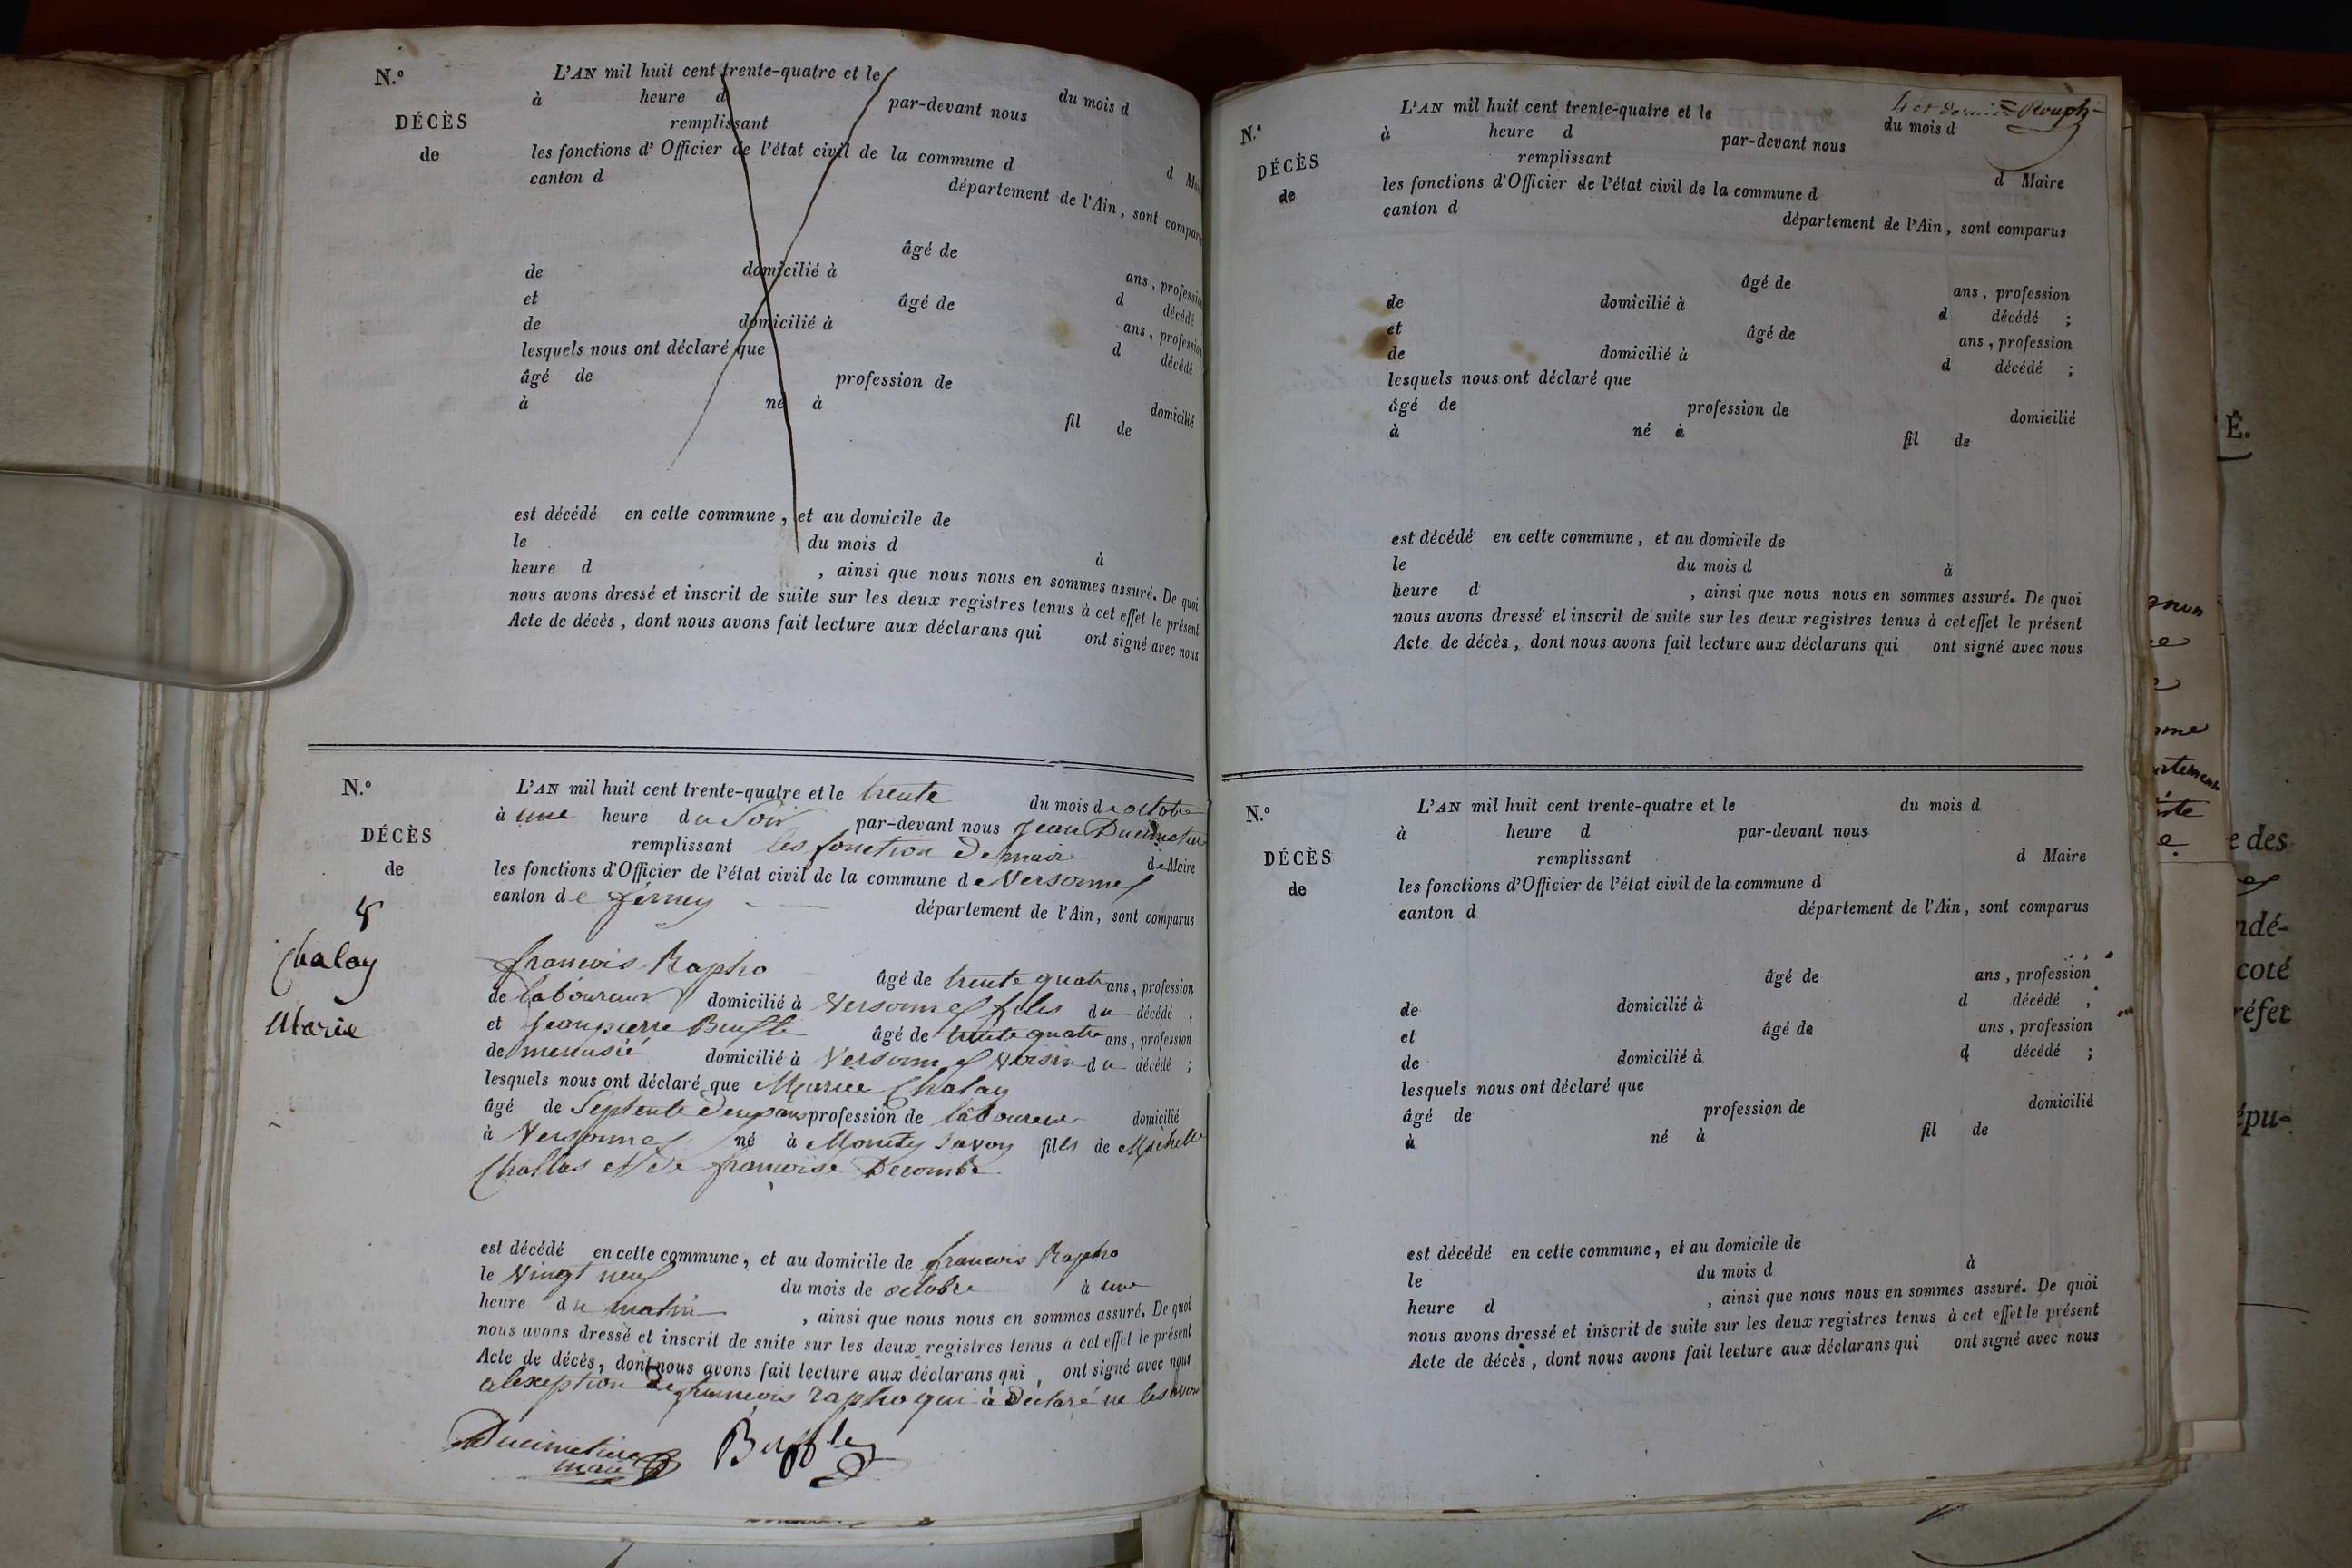 N.º
DÉCÈS
de
L'AN mil huit cent trente-quatre et le du mois d
à heure d par-devant nous
remplissant d Maire
les fonctions d'Officier de l'état civil de la commune d
canton d département de l'Ain, sont comparus
âgé de ans, profession
de domicilié à d décédé
et âgé de ans, profession
de domicilié à d décédé ;
lesquels nous ont déclaré que
âgé de profession de domicilié
à né à fil de
est décédé en cette commune, et au domicile de
le du mois d à
heure d , ainsi que nous nous en sommes assuré. De quoi
nous avons dressé et inscrit de suite sur les deux registres tenus à cet effet le présent
Acte de décès, dont nous avons fait lecture aux déclarans qui ont signé avec nous
N.º
DÉCÈS
de
Chalay
Marie
L'AN mil huit cent trente-quatre et le trente du mois de octobre
à une heure du Soir par-devant nous Jean Ducimetiere
remplissant les fonction de maire de Maire
les fonctions d'Officier de l'état civil de la commune de Versonnex
canton de ferney département de l'Ain, sont comparus
francois Rapho âgé de trente quatre ans, profession
de laboureur domicilié à Versonnex fils du décédé ,
et jeanpierre âgé de trente quatre ans, profession
de menusié domicilié à Versonnex Voisin du décédé ;
lesquels nous ont déclaré que Marie Chalay
âgé de Septente deux ans profession de laboureur domicilié
à Versonnex né à savoy fils de Michelle
Challas et de francoise Decombe
est décédé en cette commune, et au domicile de francois Rapho
le Vingt neuf du mois de octobre à une
heure du matin , ainsi que nous nous en sommes assuré. De quoi
nous avons dressé et inscrit de suite sur les deux registres tenus à cet effet le présent
Acte de décès, dont nous avons fait lecture aux déclarans qui , ont signé avec nous
alexeption de francois rapho qui à déclaré ne les avoir
Ducimetiere
maire
4 et dernier
N.º
DÉCÈS
de
L'AN mil huit cent trente-quatre et le du mois d
à heure d par-devant nous
remplissant d Maire
les fonctions d'Officier de l'état civil de la commune d
canton d département de l'Ain, sont comparus
âgé de ans, profession
de domicilié à d décédé ;
et âgé de ans, profession
de domicilié à d décédé ;
lesquels nous ont déclaré que
âgé de profession de domicilié
à né à fil de
est décédé en cette commune, et au domicile de
le du mois d à
heure d , ainsi que nous nous en sommes assuré. De quoi
nous avons dressé et inscrit de suite sur les deux registres tenus à cet effet le présent
Acte de décès, dont nous avons fait lecture aux déclarans qui ont signé avec nous
N.º
DÉCÈS
de
L'AN mil huit cent trente-quatre et le du mois d
à heure d par-devant nous
remplissant d Maire
les fonctions d'Officier de l'état civil de la commune d
canton d département de l'Ain, sont comparus
âgé de ans, profession
de domicilié à d décédé ,
et âgé de ans, profession
de domicilié à d décédé ;
lesquels nous ont déclaré que
âgé de profession de domicilié
à né à fil de
est décédé en cette commune, et au domicile de
le du mois d à
heure d , ainsi que nous nous en sommes assuré. De quoi
nous avons dressé et inscrit de suite sur les deux registres tenus à cet effet le présent
Acte de décès, dont nous avons fait lecture aux déclarans qui ont signé avec nous
Ê.
e des
ndé-
coté
réfet
épu-